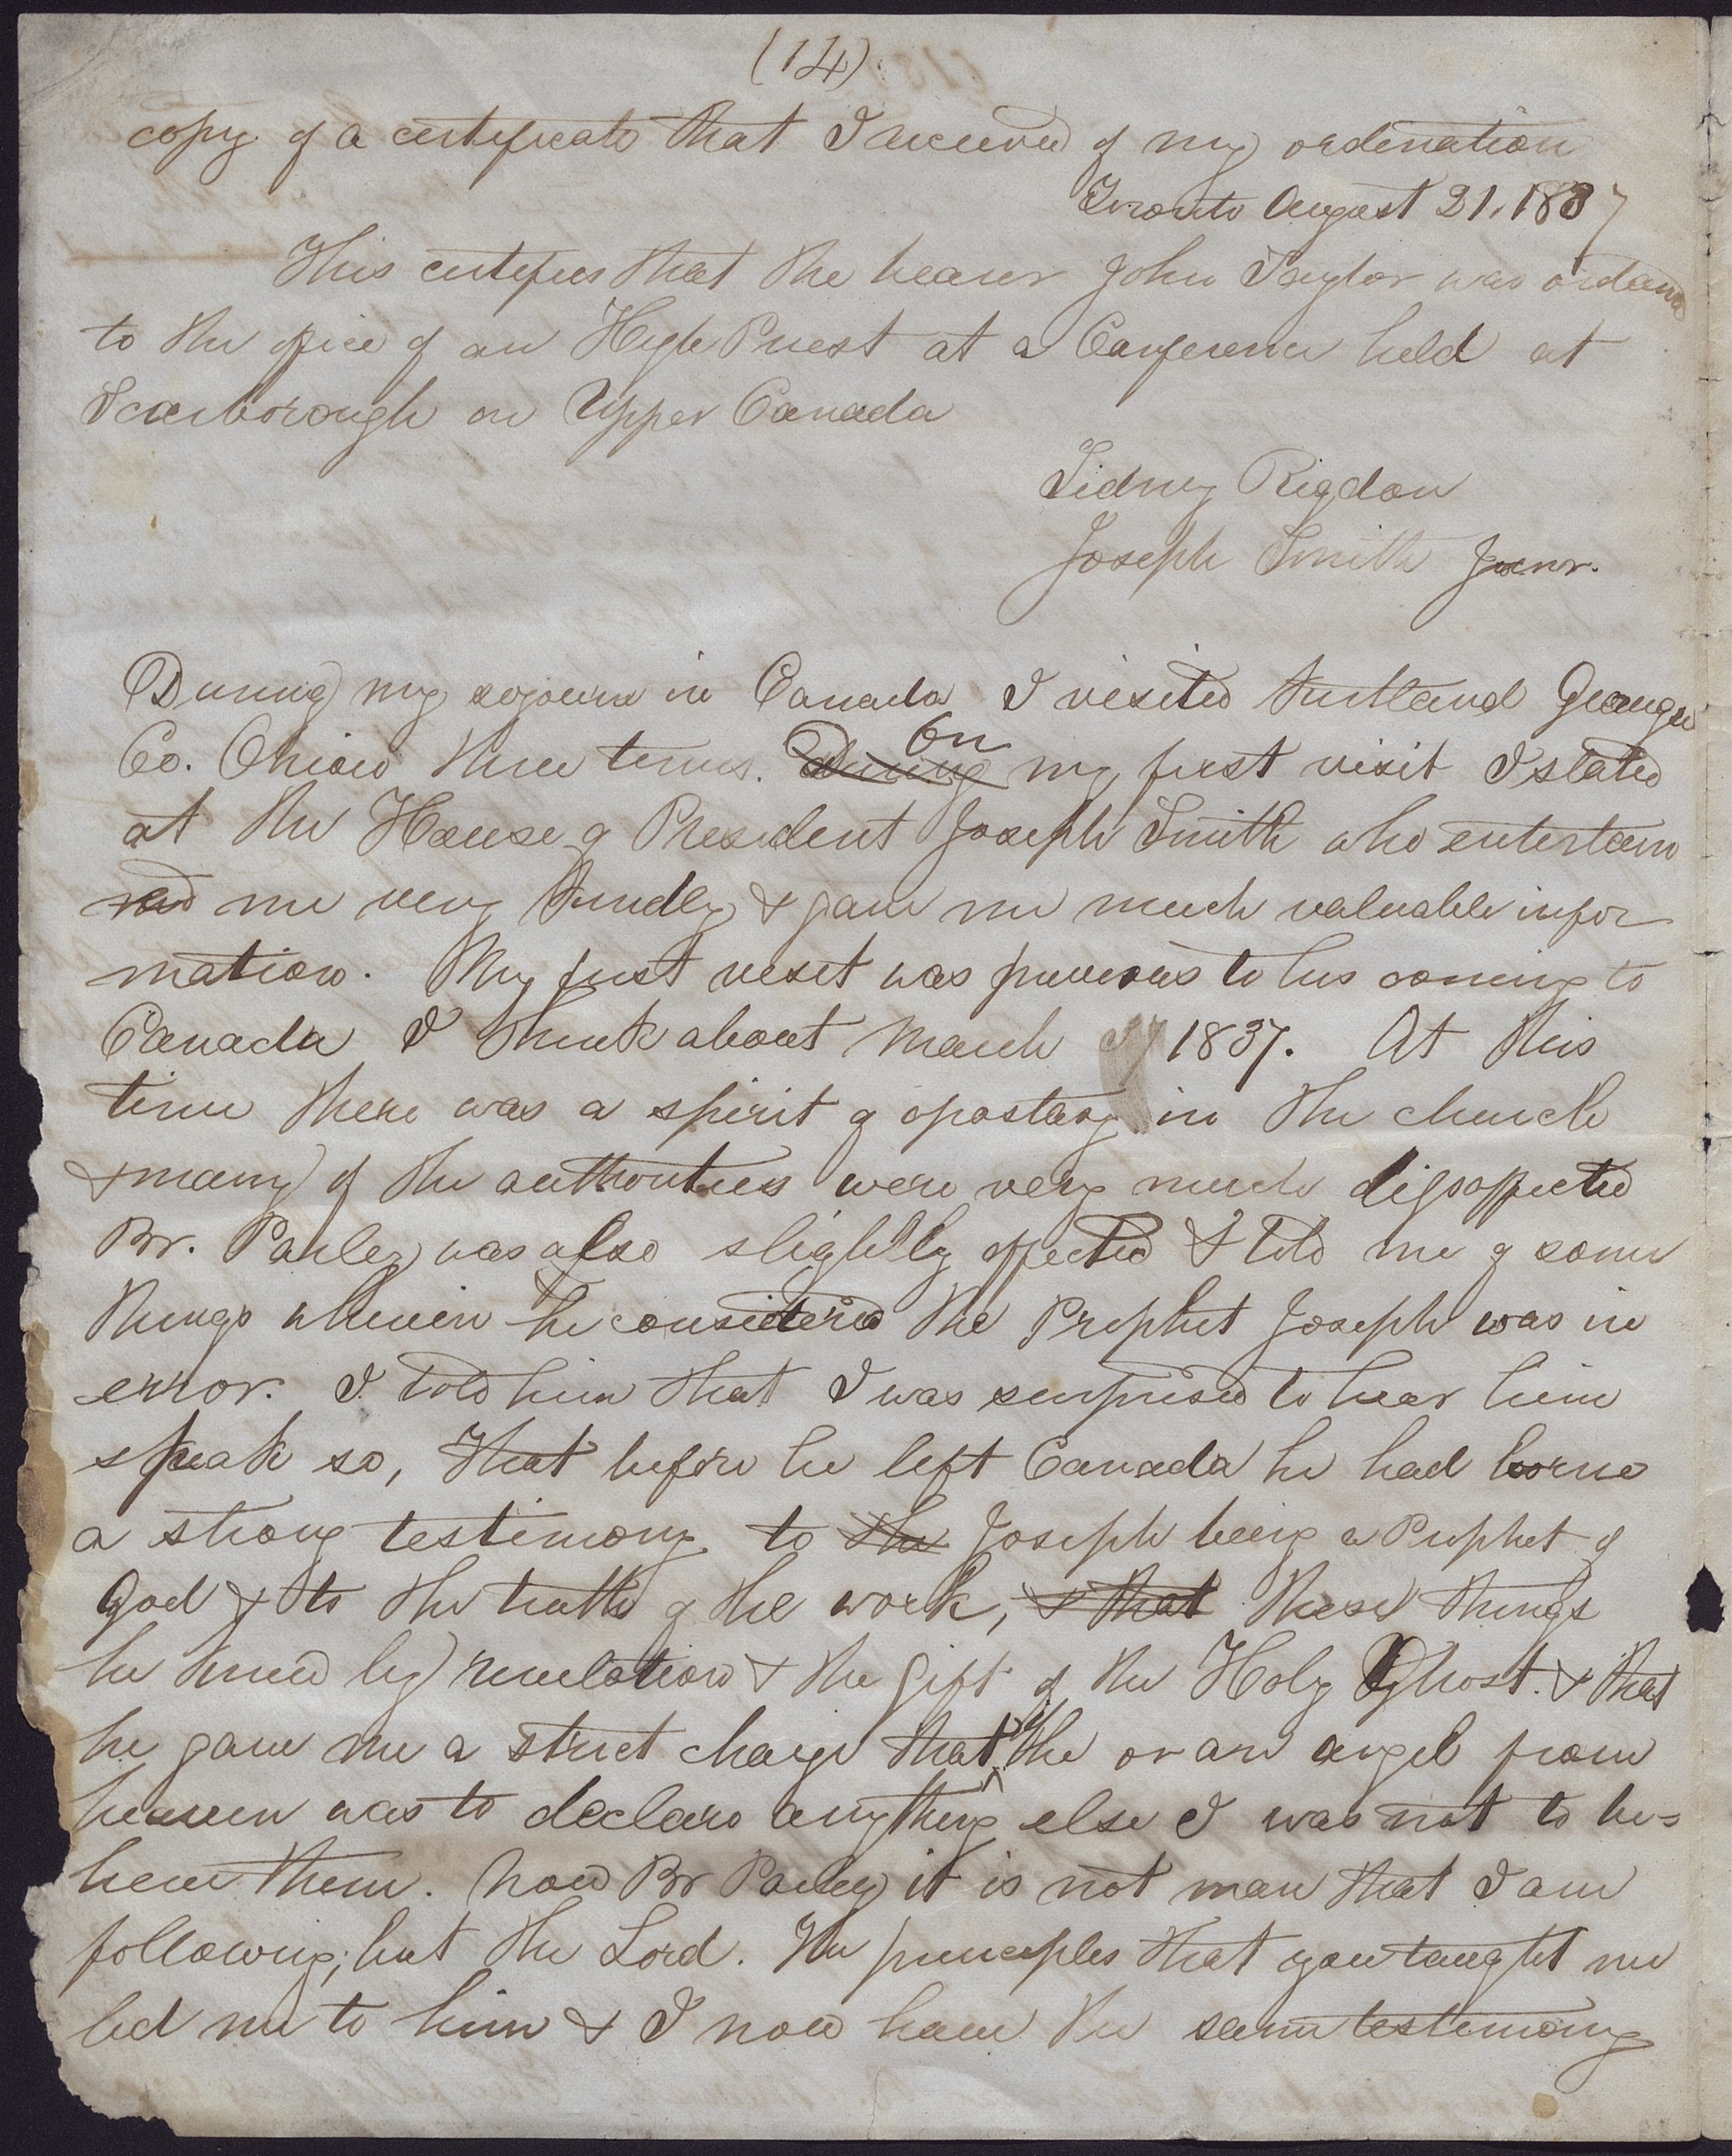 (14)
copy of a certificate that I received of my ordination
Toronto August 21. 1837
This certifies that the bearer John Taylor was ordained
to the office of an High Priest at a Conference held at
Scarborough on Upper Canada
Sidney Rigdon
Joseph Smith Junr.
During my sojourn in Canada I visited Kirtland Geauga
Co. Ohio three times. During On my first visit I stated
at the House of President Joseph Smith who entertain
ned me very kindly & gave me much valuable infor
mation. My first visit was previous to his coming to
Canada I think about March 1837. At this
time there was a spirit of apostasy in the church
& many of the authorities were very much disaffected
Br. Parley was also slightly affected & told me of some
things wherein he considered the Prophet Joseph was in
error. I told him that I was surprised to hear him
speak so, that before he left Canada he had borne
a strong testimony to the Joseph being a Prophet of
God & to the truth of the work, & that these things
he knew by revelation & the gift of the Holy Ghost. & that
he gave me a strict charge that if he or an angel from
heaven was to declare anything else I was not to be=
lieve them. Now Br Parley it is not man that I am
following, but the Lord. The principles that you taught me
led me to him & I now have the same testimony